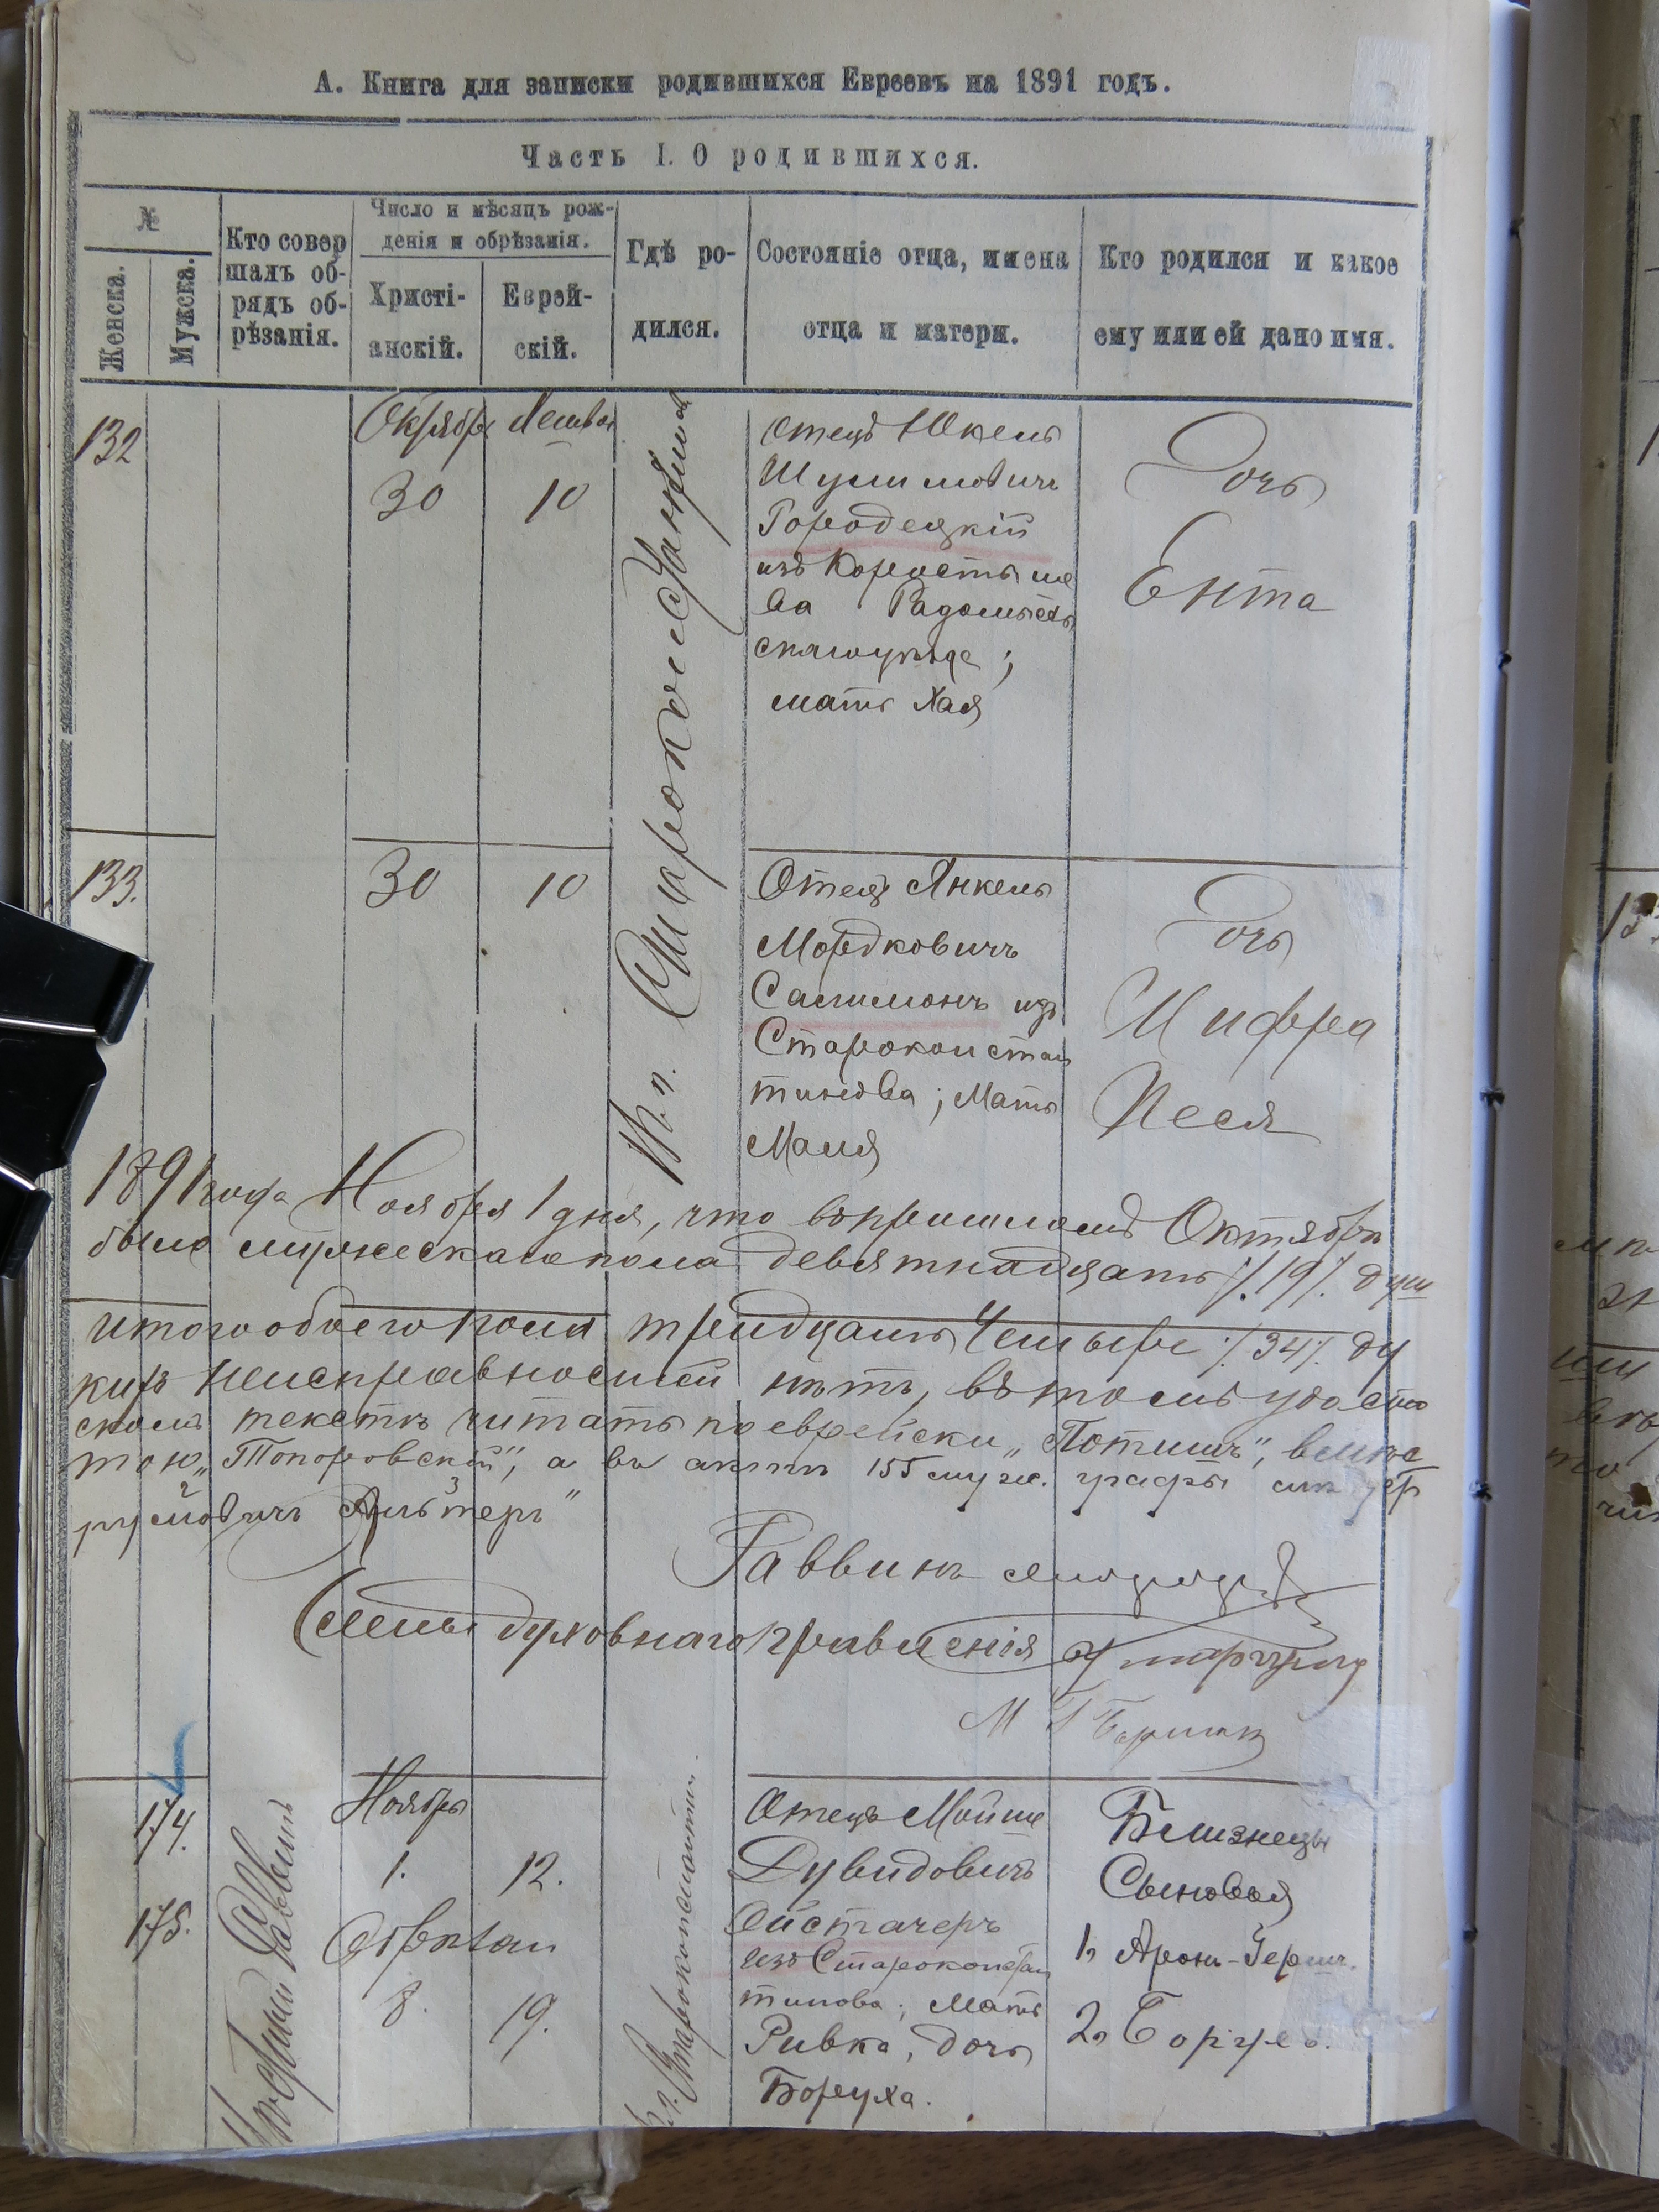 А. Книга для записки родившихся Евреевъ на 1891 годъ.
Часть I. О родившихся.
№
Женска.
Мужска.
Кто совер
шалъ об-
рядъ об-
рѣзанія.
Число и мѣсяцъ рож-
денія и обрѣзанія.
Христі-
анскій.
Еврей-
скій.
Гдѣ ро-
дился.
Состояніе отца, имена
отца и матери.
Кто родился и какое
ему или ей дано имя.
132
Октября
30
10
Отецъ Юкель
Городецкій
изъ Коростыше
ва Радомысль
скаго уѣзда;
мать Хая
Дочь
Ента
133.
30
10
Отецъ Янкель
Мордковичъ
Салимонъ изъ
Старокостан
тинова; Мать
Маля
Дочь
Шифра
Песя
1891 года Ноября 1 дня, что въ прошломъ Октябрѣ
было мужескаго пола девятнадцать /.19/. душ
итого обоего пола тридцать четыре /.34/. ду
кихъ неисправностей нѣтъ, въ томъ удосто
скомъ текстѣ читать по еврейски „Потишъ“, вмѣс
тою „Топоровскій“, а въ актѣ 155 муж. графы
Альтеръ“
Раввинъ
Члены духовнаго правленія
174.
175.
Ноября
1.
12.
8.
19.
Раввинъ
Отецъ Мойше
Дувидовичъ
Ойстачеръ
изъ Старокостан
тинова; Мать
Ривка, дочь
Боруха.
Близнецы
Сыновья
1, Аронъ-Герш.
2,